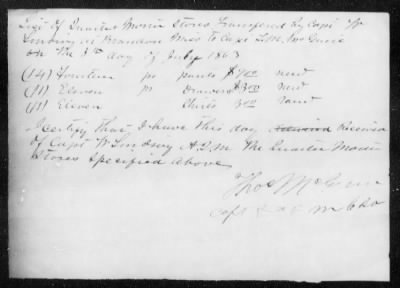 List of Quarter Master Stores Transfered by Capt W
Lindsey at Brandon Miss to Capt T.M. McGuire
on The 3rd day of July 1863
(14) Fourteen pr pants $9.00 new
(11) Eleven pr Drawers $3.00 new
(11) Eleven Shirts 3.00 new
I certify that I have this day Received
of Capt W Lindsey A.Q.M. The Quarter Master
Stores Specified above
Thos McGuire
Capt & A Q M CSA